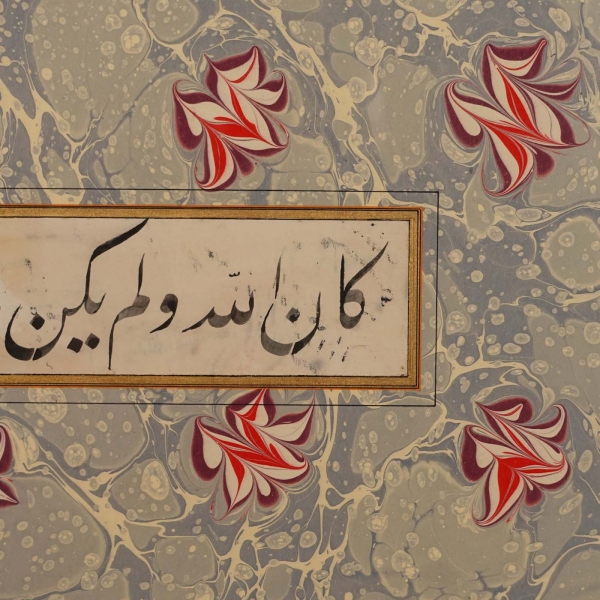 كان الله ولم يكن